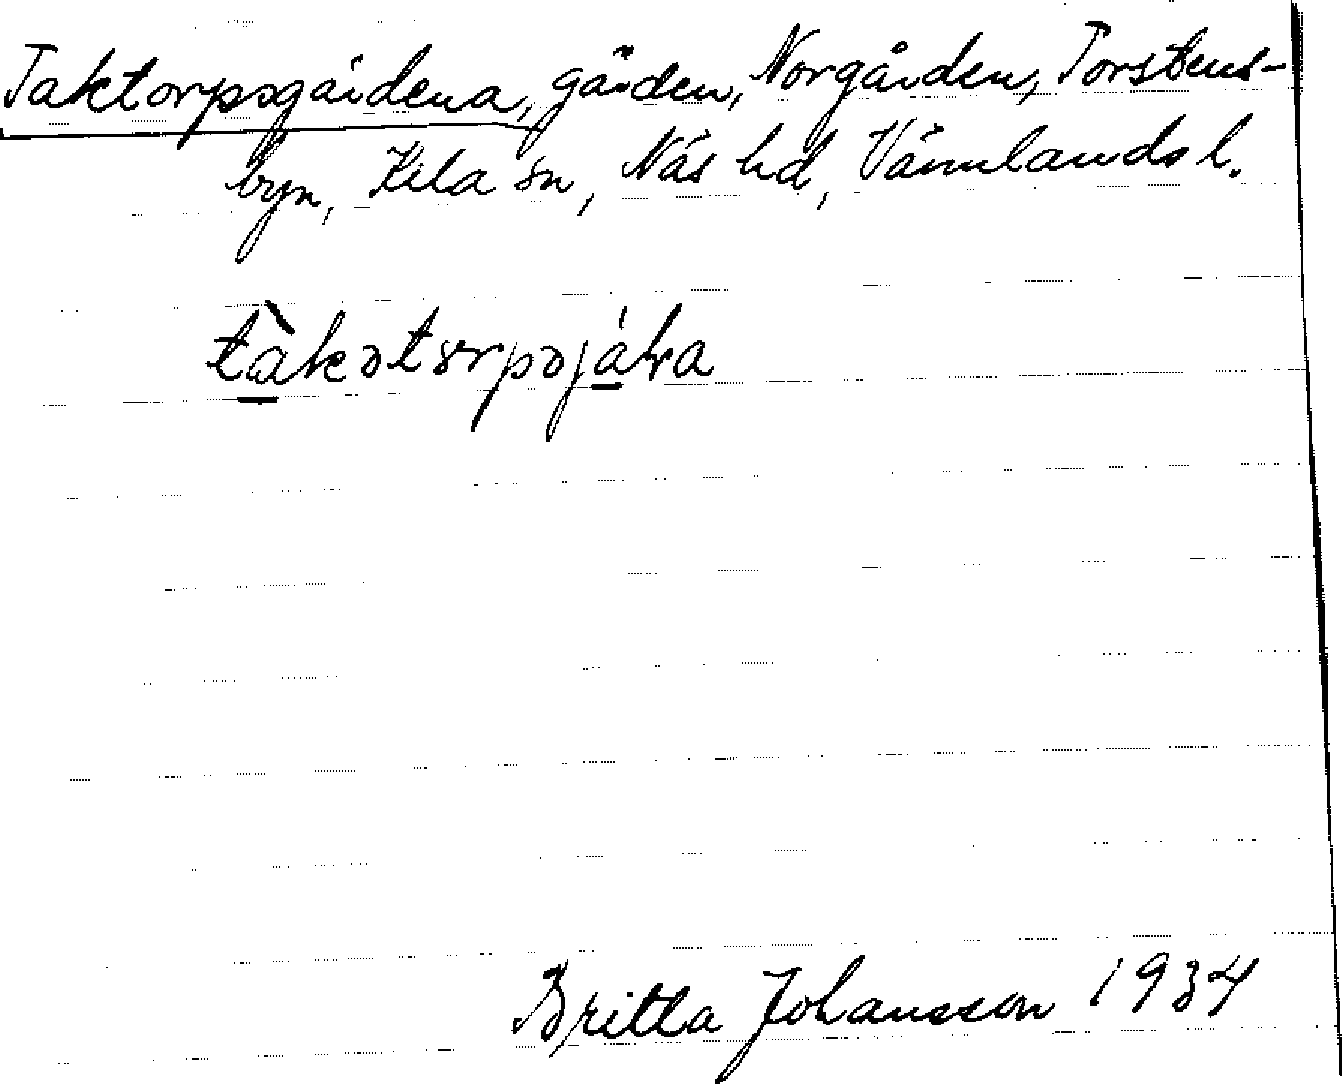 Taktorpsgårdena, gården, Norgården, Torstens-
byn, Kila sn, Näs hd, Värmlands l.
tàkətorpəjáɽa
Britta Johansson 1934